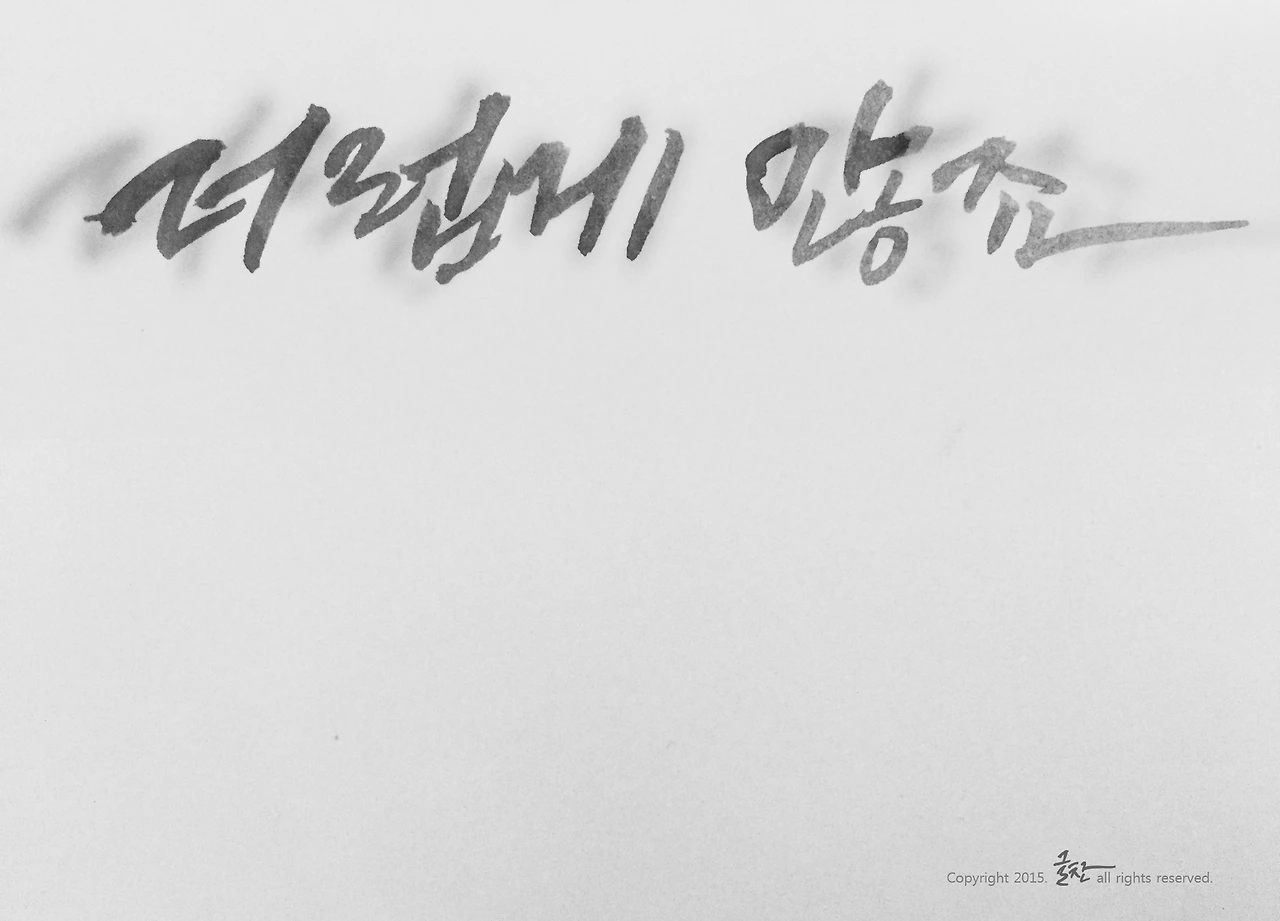 더럽게 많죠
Copyright 2015. 글찬 all rights reserved.